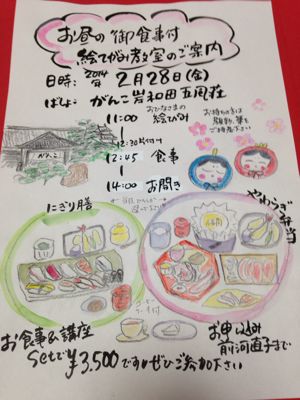 お昼の御食事付
絵てがみ教室のご案内
日時: 2014年 2月28日(金)
ばしょ: がんこ岩和田五風荘
11:00 おひなさまの絵てがみ
12:30片付け
12:45 食事
14:00 お開き
がんこ
にぎり膳
やわらぎ弁当
コーヒー
お食事&講座
setで¥3,500です。ぜひご参加下さい
お申し込み
前河直子まで